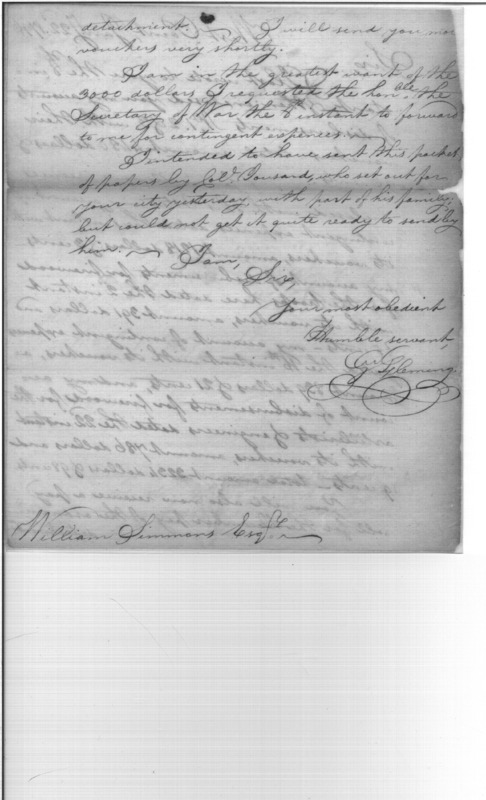 detachment. I will send you more
vouchers very shortly.
I am in the greatest want of the
3000 dollars I requested the hon.ble the
Secretary of War the 6th instant to forward
to me for contingent expences.
I intended to have sent this packet
of papers by Col.l Tousard, who set out for
your city yesterday, with part of his family,
but could not get it quite ready to send by
him. — I am,
Sir,
Your most obedient
Humble servant,
G. Fleming.
William Simmons Esq.r